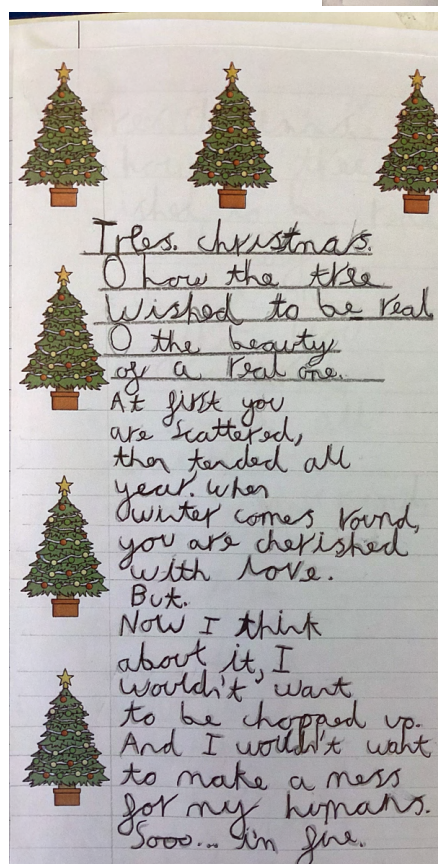 Trees. christmas.
O how the tree
Wished to be real
O the beauty
of a real one.
At first you
are scattered,
then tended all
year. when
winter comes round,
you are cherished
with love.
But.
Now I think
about it, I
wouldn't want
to be chopped up.
And I wouldn't want
to make a mess
for my humans.
Sooo... im fine.